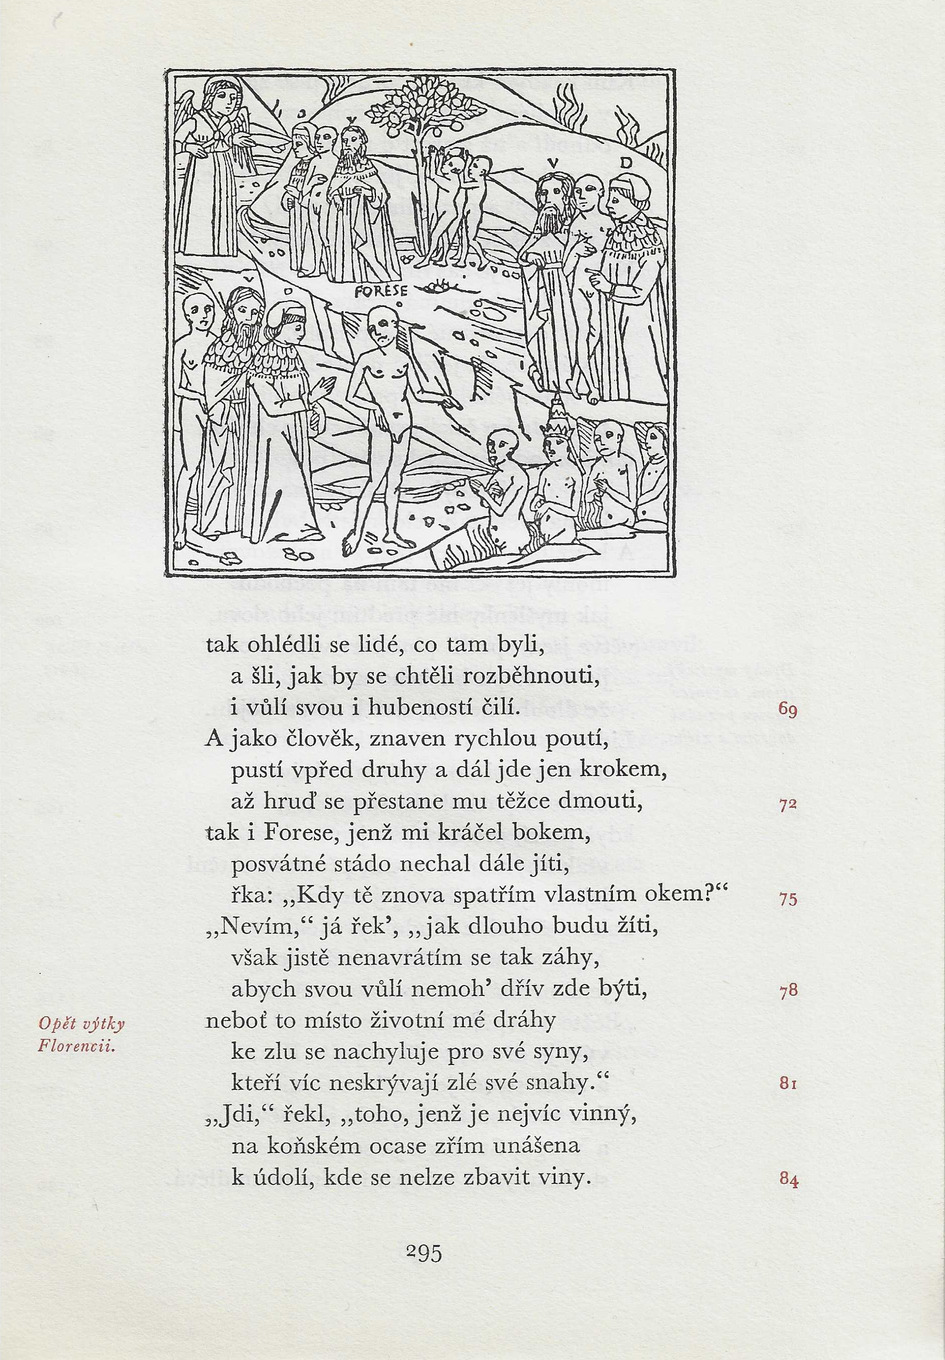 D
V
V
D
FORESE
V
D
tak ohlédli se lidé, co tam byli,
a šli, jak by se chtěli rozběhnouti,
i vůlí svou i hubeností čilí. 69
A jako člověk, znaven rychlou poutí,
pustí vpřed druhy a dál jde jen krokem,
až hruď se přestane mu těžce dmouti, 72
tak i Forese, jenž mi kráčel bokem,
posvátné stádo nechal dále jíti,
řka: „Kdy tě znova spatřím vlastním okem?“ 75
„Nevím,“ já řek’, „jak dlouho budu žíti,
však jistě nenavrátím se tak záhy,
abych svou vůlí nemoh’ dřív zde býti, 78
Opět výtky
Florencii.
neboť to místo životní mé dráhy
ke zlu se nachyluje pro své syny,
kteří víc neskrývají zlé své snahy.“ 81
„Jdi,“ řekl, „toho, jenž je nejvíc vinný,
na koňském ocase zřím unášena
k údolí, kde se nelze zbavit viny. 84
295